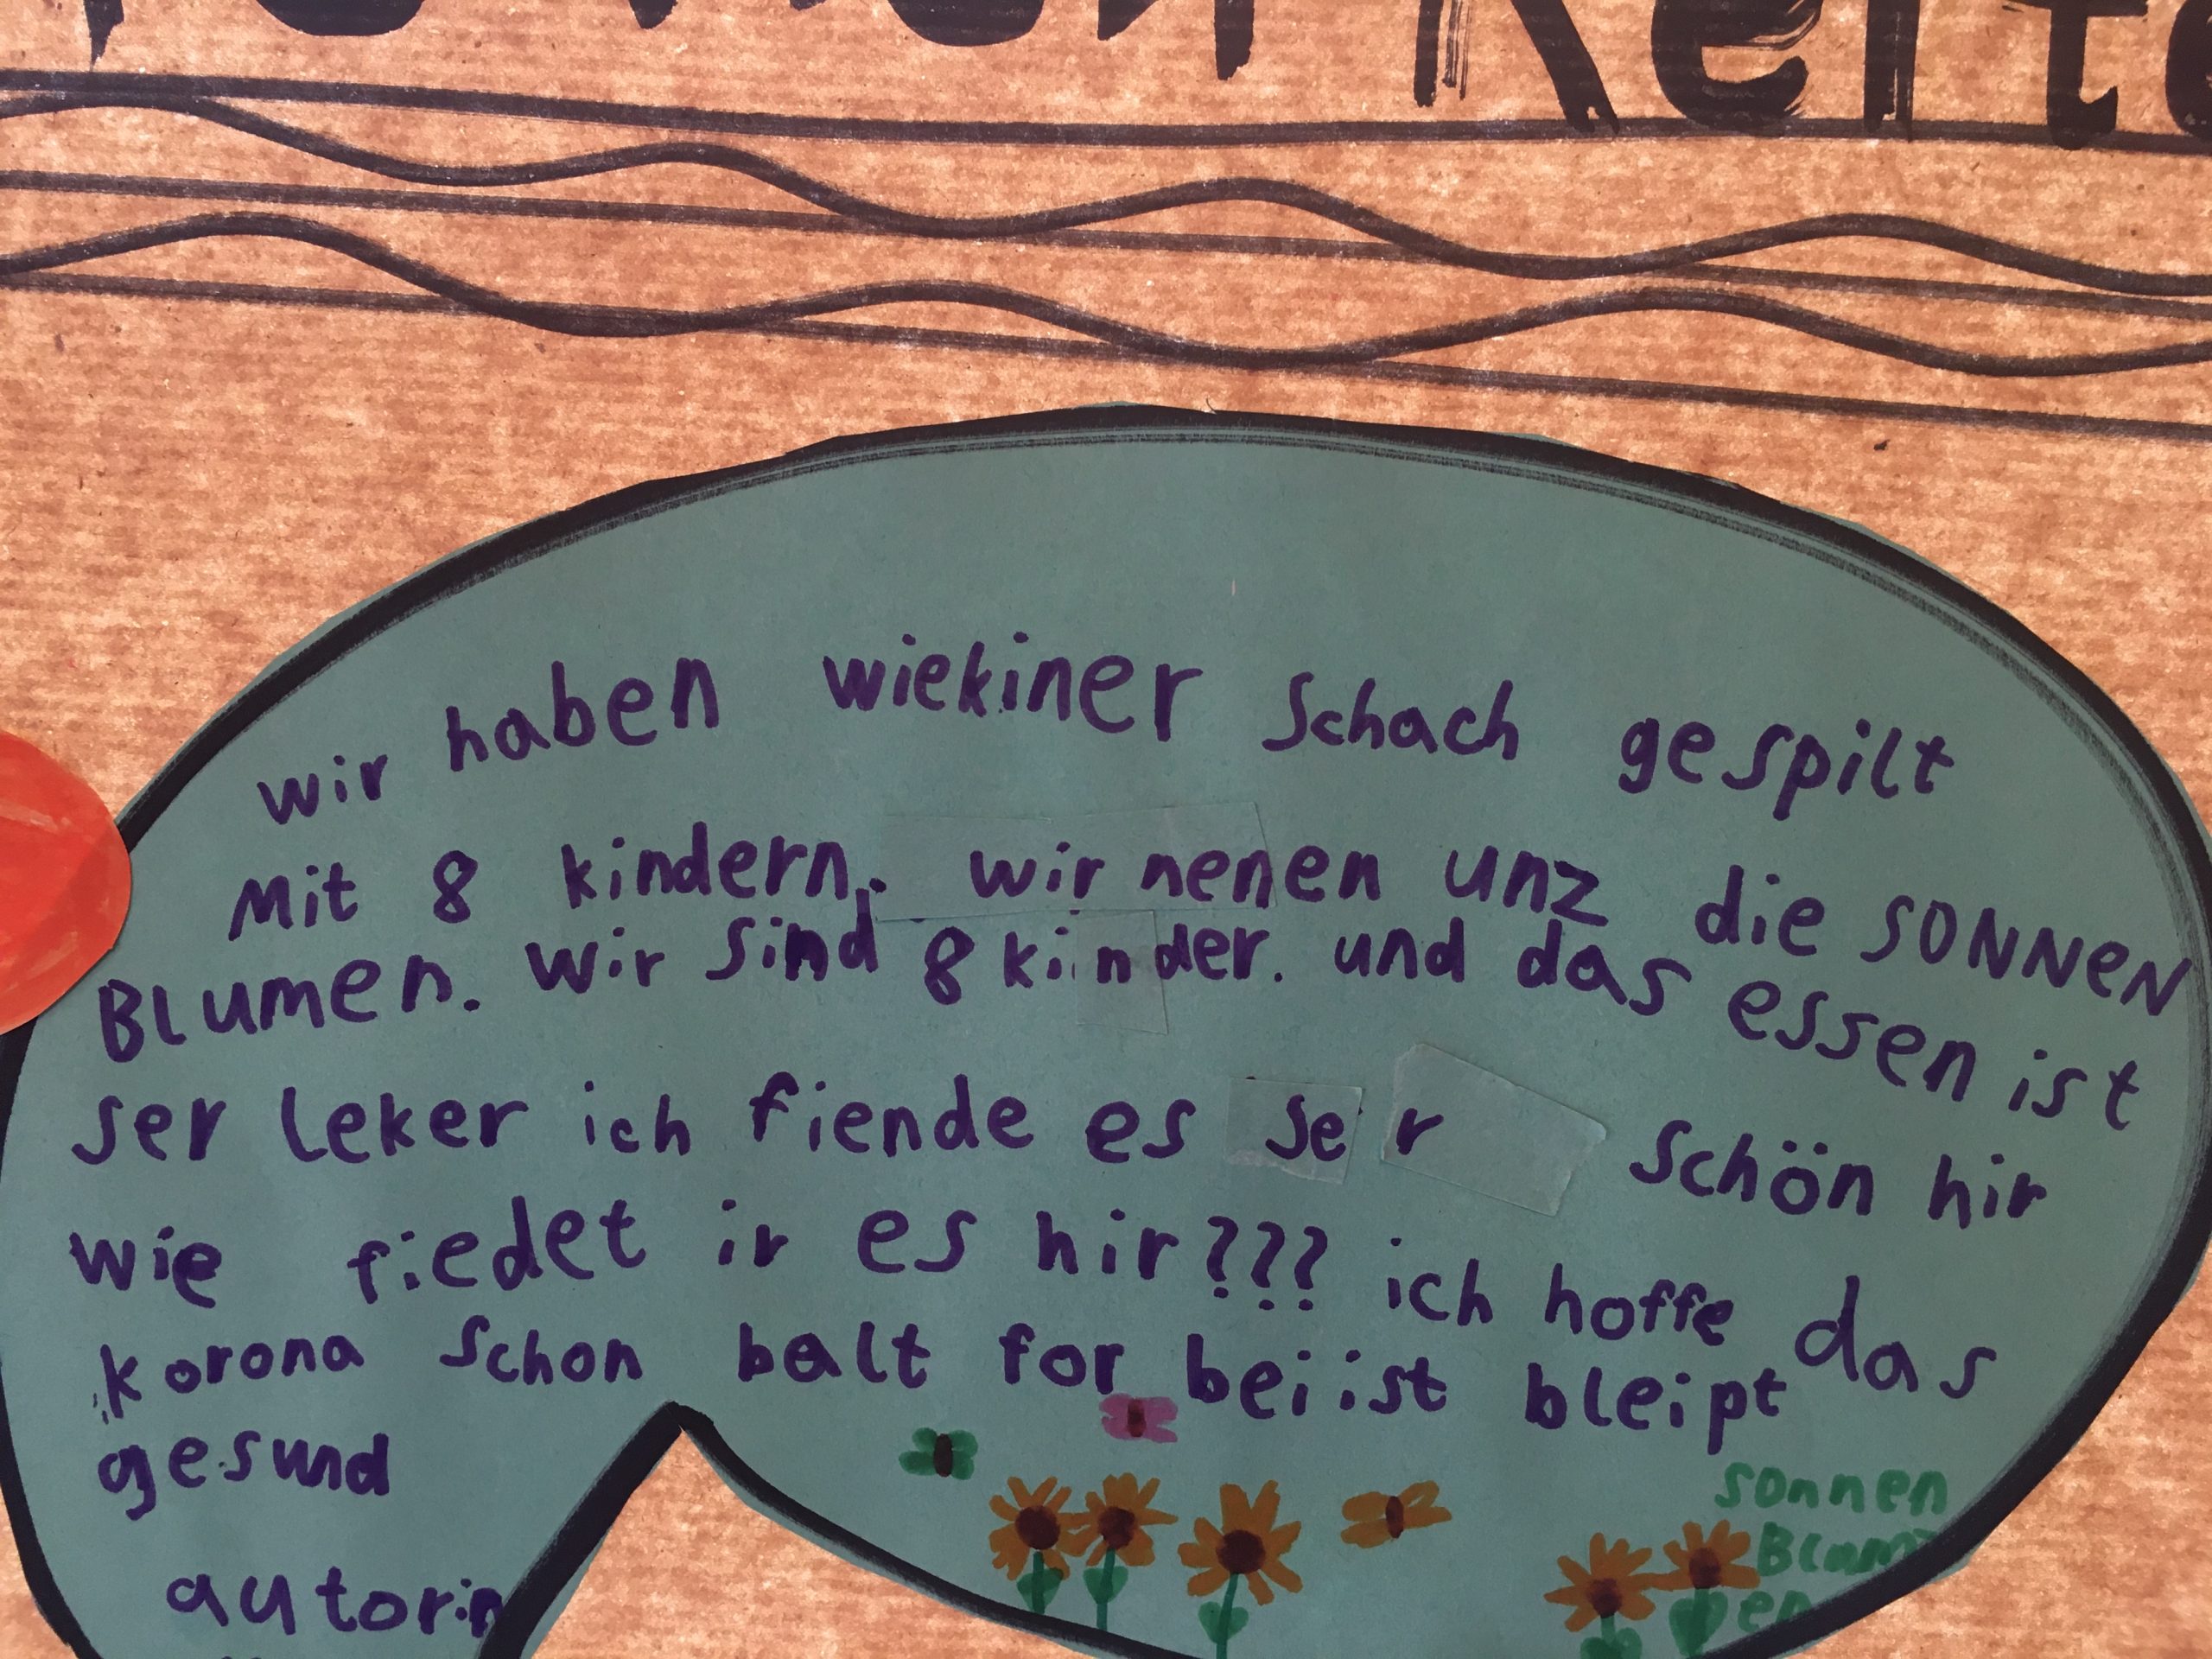 wir haben wiekiner Schach gespilt
Mit 8 kindern. wir nenen unz die SONNEN
BLumen. wir Sind 8 kinder. und das essen ist
ser leker ich fiende es ser schön hir
wie fiedet ir es hir??? ich hoffe das
korona schon balt for bei ist bleipt
gesund
autorin
sonnen
Blum
en